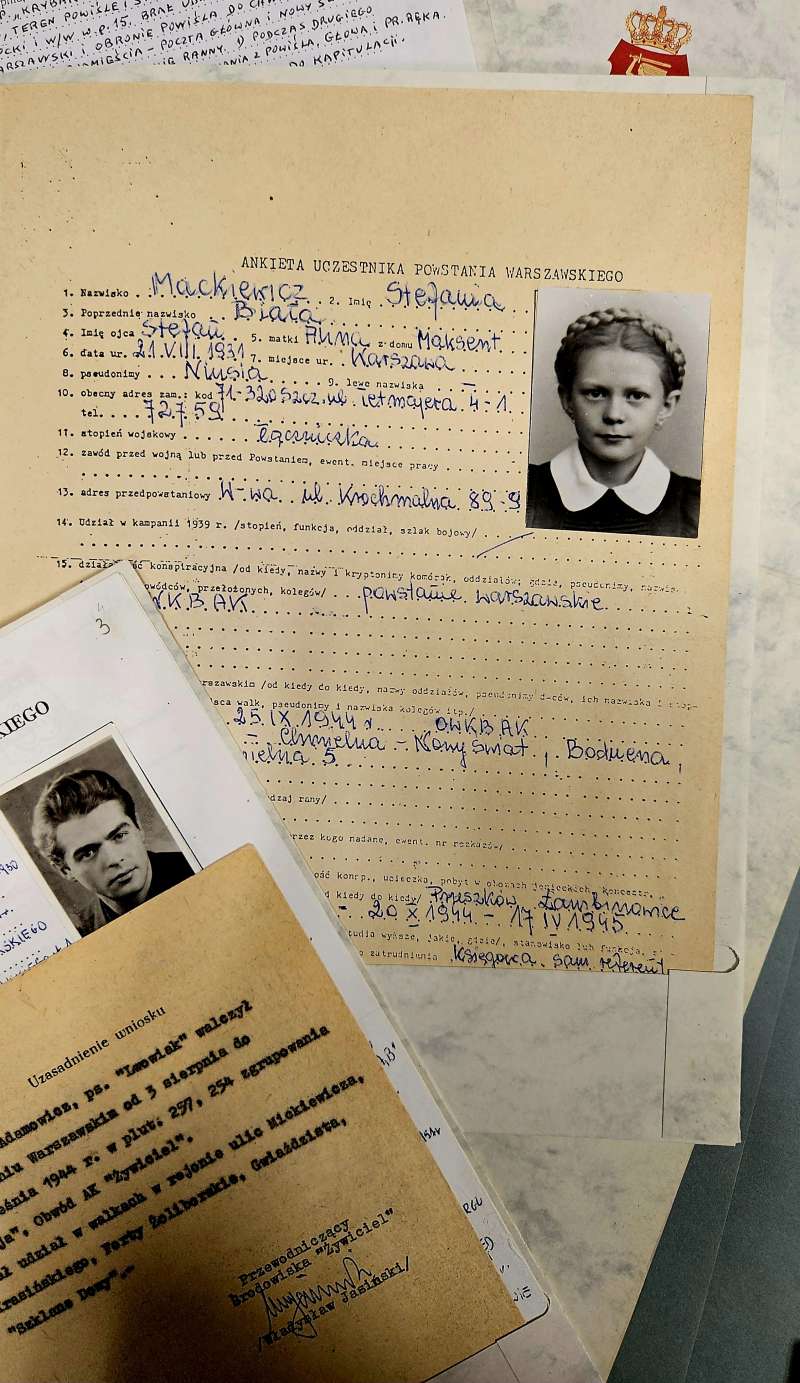 P. "KRYBAR
TEREN POWIŚLE I S
W/W W.P. 15. BRAŁ UDZ
ARSZAWSKI I OBRONIE POWIŚLA DO
MIEŚCIA - POCZTA GŁÓWNA I NOWY Ś
RANNY. 1) PODCZAS DRUGIEGO
Z POWIŚLA, GŁOWA I PR. RĘKA.
DO KAPITULACJI.
ANKIETA UCZESTNIKA POWSTANIA WARSZAWSKIEGO
1. Nazwisko . Mackiewicz . 2. Imię . Stefania
3. Poprzednie nazwisko . Biała
4. Imię ojca Stefan 5. matki Alina z domu Maksent
6. data ur. 21.VIII.1931 7. miejsce ur. Warszawa
8. pseudonimy . Niusia 9. lewe nazwiska . —
10. obecny adres zam.: kod 71-320 Szcz. ul. Tetmajera 4-1.
tel. 72759
11. stopień wojskowy . łączniczka
12. zawód przed wojną lub przed Powstaniem, ewent. miejsce pracy
13. adres przedpowstaniowy W-wa ul. Krochmalna 89-9
14. Udział w kampanii 1939 r. /stopień, funkcja, oddział, szlak bojowy/
15. działa ść konspiracyjna /od kiedy, nazwy i kryptonimy komórek, oddziałów, gdzie, pseudonimy, nazwis
owódców, przełożonych, kolegów/ . powstanie warszawskie
W.K.B. AK
3
rszawskim /od kiedy do kiedy, nazwy oddziałów, pseudonimy d-ców, ich nazwiska i stop-
sca walk, pseudonimy i nazwiska kolegów itp./
25 IX 1944 r. OWKB AK
- Chmielna - Nowy Świat, Boduena,
ielna 5
dzaj rany/
przez kogo nadane, ewent. nr rozkazów/
ość konsp., ucieczka, pobyt w obozach jenieckich, koncentr.
d kiedy do kiedy/ Pruszków, Łambinowice
- 20 X 1944 - 17 IV 1945
tudia wyższe, jakie, gdzie/, stanowisko lub funkcja,
o zatrudnienia Księgowa sam. referent
KIEGO
930
SKIEGO
Uzasadnienie wniosku
Adamowicz, ps. "Lwowiak" walczył
niu Warszawskim od 3 sierpnia do
eśnia 1944 r. w plut. 257, 254 zgrupowania
ja", Obwód AK "Żywiciel".
ał udział w walkach w rejonie ulic Mickiewicza,
Krasińskiego, Forty Żoliborskie, Gwiaździsta,
"Szklane Domy".-
Przewodniczący
Środowiska "Żywiciel"
/Władysław Jasiński/